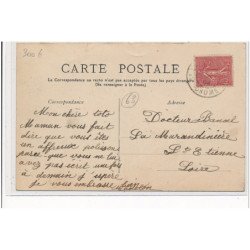 3006
CARTE POSTALE
La Correspondance au recto n'est pas acceptée par tous les pays étrangers
(Se renseigner à la Poste)
Correspondance
63
Adresse
Mon chère toto
Maman vous fait
dire que vous êtes
un affreux polisson
parce que vous ne lui
avez pas écrit
à demain j'espère
Je vous embrasse
Docteur
La Marandinière
St Etienne
Loire